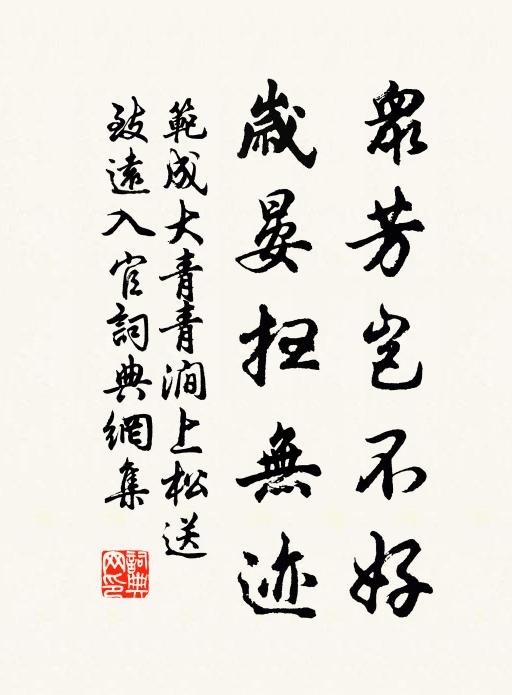 眾芳豈不好
歲晏掃無迹
範成大青青澗上松送
致遠入官詞典網集
詞典网印